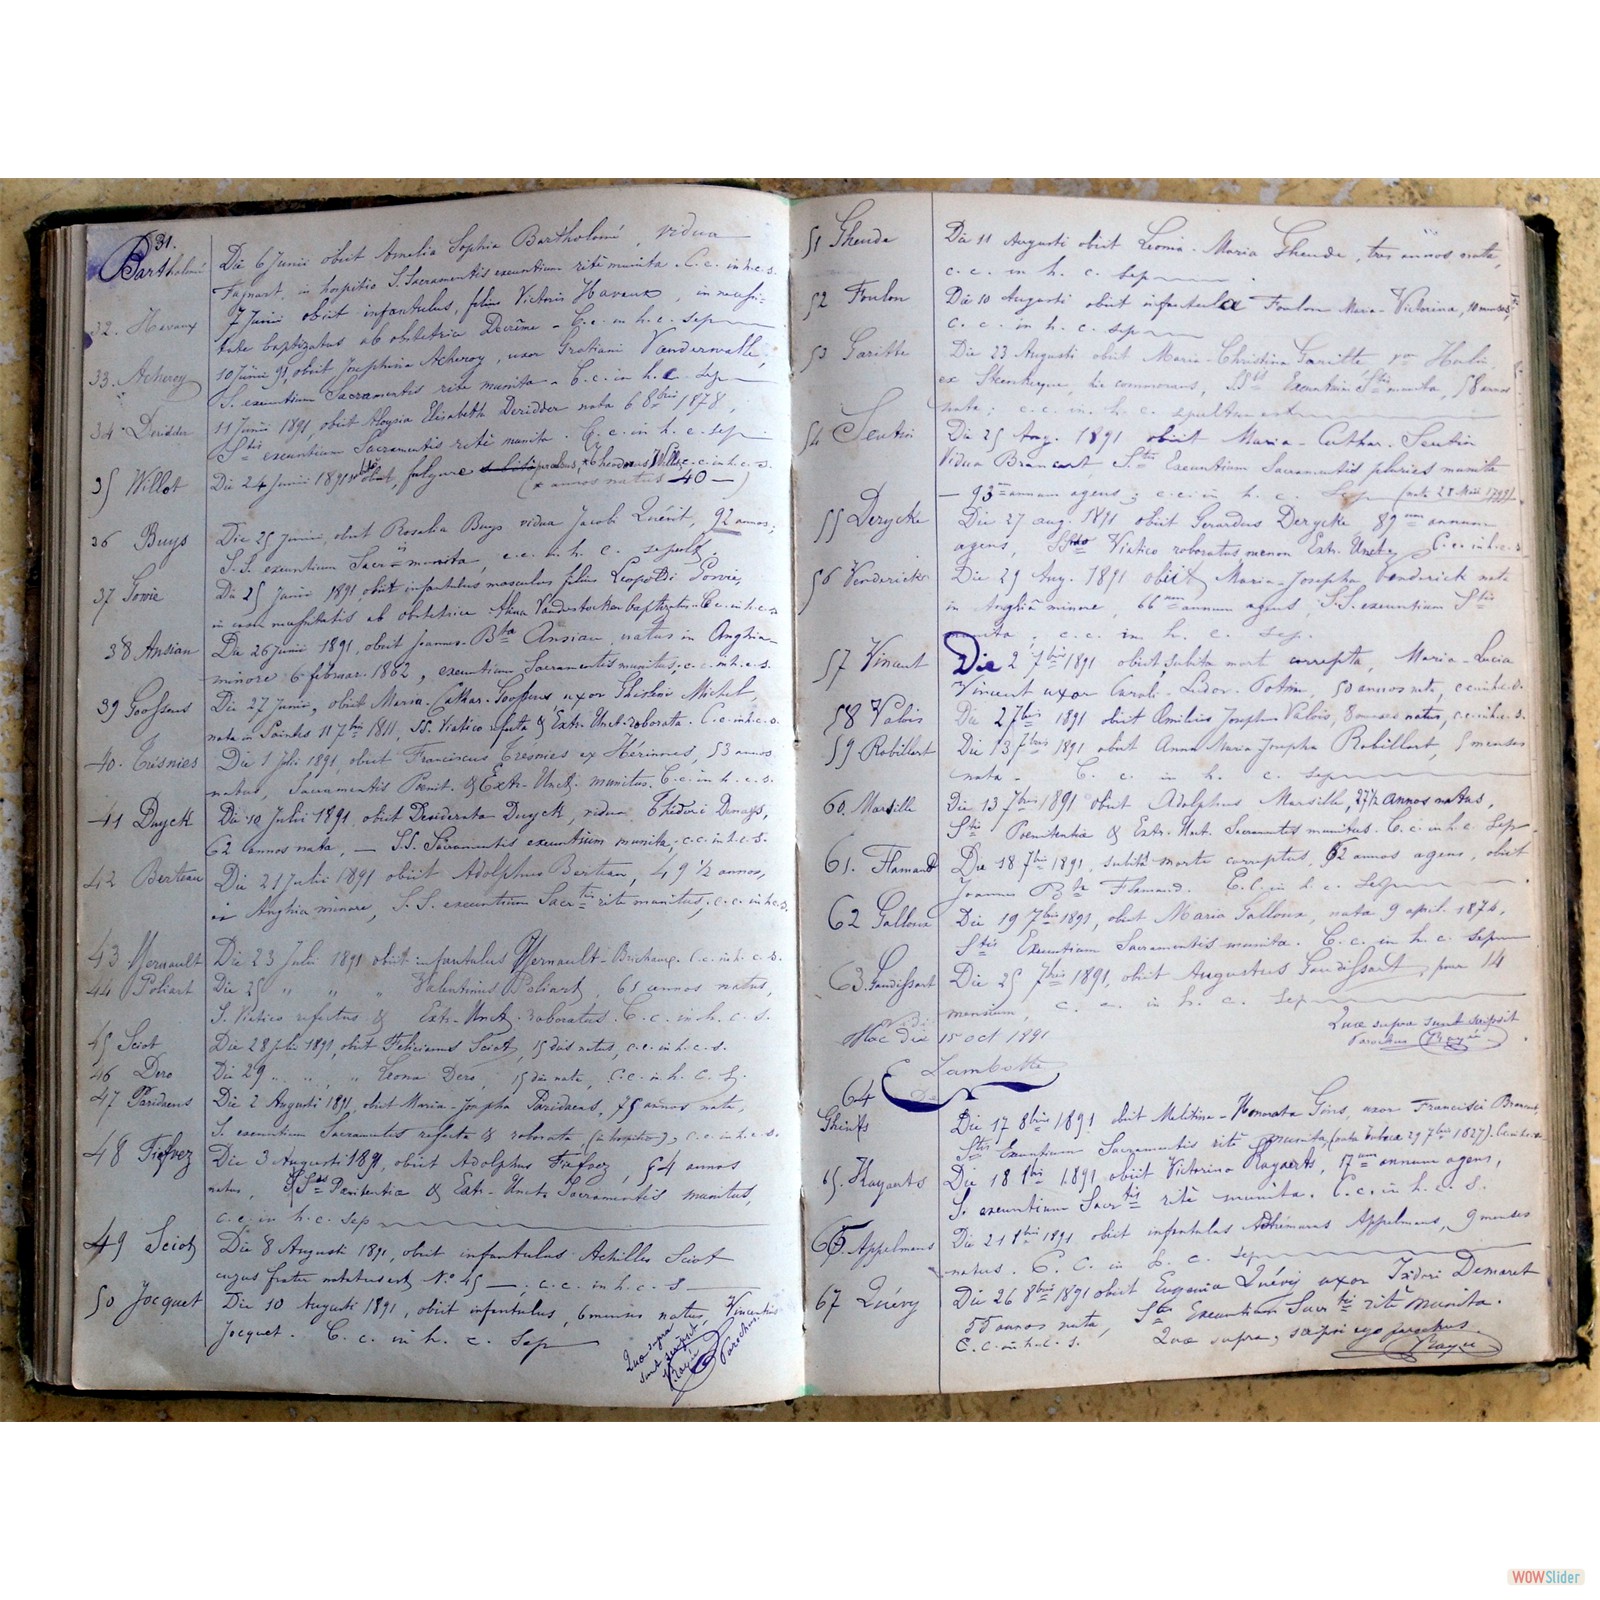 31.
Bartholomé Die 6 Junii obiit Amelia Sophia Bartholomé, vidua
Fagnart, in hospitio S. Sacramentis exeuntium ritè munita. C. c. in h. c. s.
32. Havaux 7 Junii obiit infantulus, filius Victoris Havaux, in necessi-
tate baptizatus ab obstetrice - C. c. in h. c. sep
33. Acheroy 10 Junii 91, obiit Josephina Acheroy, uxor Gratiani Vanderwalle,
S. exeuntium Sacramentis rite munita - C. c. in h. c. sep
34. Deridder 11 Junii 1891, obiit Aloysia Elisabeth Deridder nata 6 8bris 1878,
Stis exeuntium Sacramentis ritè munita. C. c. in h. c. sep
35 Willot Die 24 Junii 1891 obiit, fulgure Willot, c. c. in h. c. s.
(x annos natus 40 -)
36 Buys Die 25 Junii, obiit Rosalia Buys vidua Jacobi Quérit, 92 annos;
S. S. exeuntium Sacris munita, c. c. in h. c. sepult.
37 Die 25 Junii 1891, obiit infantulus masculus filius Leopoldi
in casu necessitatis ab obstetrice Alina baptizatus. C. c. in h. c. s
38 Ansiau Die 26 Junii 1891, obiit Joannes-Bta Ansiau, natus in Anghia-
minore 6 februar. 1862, exeuntium Sacramentis munitus; c. c. in h. c. s.
39 Goossens Die 27 Junii, obiit Maria-Cathar. Goossens, uxor Michel,
nata in Saintes 11 7bris 1811, SS. Viatico refecta & Extr. Unct. roborata. C. c. in h. c. s
40. Trésnies Die 1 Julii 1891, obiit Franciscus Tresnies ex Hérinnes, 53 annos
natus, Sacramentis Poenit. & Extr. Unct. munitus. C. c. in h. c. s.
41 Duyck Die 10 Julii 1891, obiit Desiderata Duyck, vidua
62 annos nata, - SS. Sacramentis exeuntium munita, c. c. in h. c. s.
42 Berteau Die 21 Julii 1891 obiit Adolphus Berteau, 49 1/2 annos,
in Anghia minore, S. S. exeuntium Sacrtis rite munitus, c. c. in h. c. s.
43 Mernault Die 23 Julii 1891 obiit infantulus Mernault - C. c. in h. c. s.
44 Poliart Die 25 " " " Valentinus Poliart, 61 annos natus,
S. Viatico refectus & Extr. Unct. roboratus. C. c. in h. c. s.
45 Sciot Die 28 Julii 1891, obiit Felicianus Sciot, 15 dies natus, c. c. in h. c. s.
46 Dero Die 29 " " " Leona Dero, 15 dies nata, C. c. in h. c. s.
47 Paridaens Die 2 Augusti 1891, obiit Maria-Josepha Paridaens, 75 annos nata,
S. exeuntium Sacramentis refecta & roborata (in hospitio), c. c. in h. c. s.
48 Fiefvez Die 3 Augusti 1891, obiit Adolphus Fiefvez, 54 annos
natus, Stis Penitentiae & Extr. Unct. Sacramentis munitus,
c. c. in h. c. sep
49 Sciot Die 8 Augusti 1891, obiit infantulus Achilles Sciot
cujus frater notatus est No 45 -; c. c. in h. c. s
50 Jocquet Die 10 Augusti 1891, obiit infantulus, 6 menses natus, Vincentius
Jocquet. C. c. in h. c. sep
Quae supra
sunt scripsit
Parochus
51 Gheude Die 11 Augusti obiit Leonia-Maria Gheude, tres annos nata,
c. c. in h. c. sep
52 Foulon Die 10 Augusti obiit infantula Foulon Maria-Victorina, 10 menses,
c. c. in h. c. sep
53 Garitte Die 23 Augusti obiit Maria-Christina Garitte
ex Steenkerque, hic commorans, SStis Exeuntium Stis munita, 58 annos
nata; c. c. in h. c. sepulta est
54 Seutin Die 25 Aug. 1891 obiit Maria-Cathar. Seutin
Vidua Brancart, Stis Exeuntium Sacramentis pluries munita
- 93um annum agens; c. c. in h. c. sep (nata 28 1798)
55 Derycke Die 27 aug. 1891 obiit Gerardus Derycke, 89um annum
agens, SSmo Viatico roboratus necnon Extr. Uncte, C. c. in h. c. s
56 Venderick Die 29 Aug. 1891 obiit Maria-Josepha Venderick nata
in Anghiâ minore, 66um annum agens, S. S. exeuntium Stis
munita, c. c. in h. c. sep.
57 Vincent Die 2 7bris 1891 obiit, subita morte correpta, Maria-Lucia
Vincent uxor Caroli-Ludov. 50 annos nata, c. c. in h. c. s.
58 Valois Die 2 7bris 1891 obiit Emilius Joseph Valois, 8 menses natus, c. c. in h. c. s.
59 Robillart Die 13 7bris 1891 obiit Anna Maria Josepha Robillart, 5 menses
nata - C. c. in h. c. sep
60. Marsille Die 13 7bris 1891 obiit Adolphus Marsille, 27 1/2 annos natus,
Stis Poenitentiae & Extr. Unct. Sacramentis munitus. C. c. in h. c. sep
61. Flamand Die 18 7bris 1891, subitâ morte correptus, 62 annos agens, obiit
Joannes Bta Flamand. C. C. in h. c. sep
62 Galloux Die 19 7bris 1891, obiit Maria Galloux, nata 9 april. 1874,
Stis Exeuntium Sacramentis munita. C. c. in h. c. sep
63. Gaudissart Die 25 7bris 1891, obiit Augustus Gaudissart, puer 14
mensium, c. c. in h. c. sep
Quae supra sunt scripsit
Parochus
Hac die 15 oct 1891
Lambotte
64 Ghints Die 17 8bris 1891 obiit Melitina-Honorata uxor Francisci
Stis Exeuntium Sacramentis ritè munita (nata 29 7bris 1827).
65. Rayaerts Die 18 8bris 1891 obiit Victorina Rayaerts, 17um annum agens,
S. exeuntium Sacrtis ritè munita. C. c. in h. c. s.
66. Appelmans Die 21 8bris 1891, obiit infantulus Appelmans, 9 menses
natus. C. C. in h. c. sep
67 Quévy Die 26 8bris 1891 obiit Eugenia Quévy uxor Isidori Demaret
55 annos nata, Stis Exeuntium Sacrtis ritè munita.
C. C. in h. c. s. Quae supra, scripsi ego parochus
WOWSlider